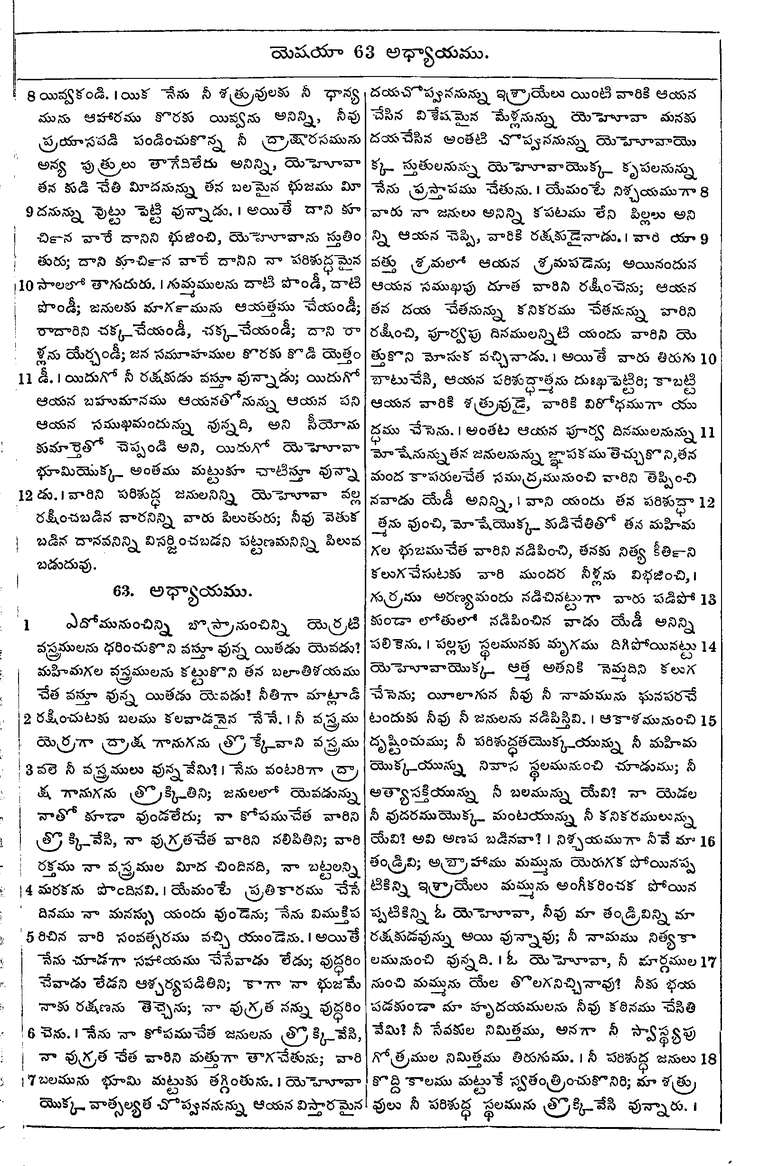 యెషయా 63 అధ్యాయము.
8 యివ్వకండి. । యిక నేను నీ శత్రువులకు నీ ధాన్య
మును ఆహారము కొరకు యివ్వను అనిన్ని, నీవు
ప్రయాసపడి పండించుకొన్న నీ ద్రాక్షారసమును
అన్య పుత్రులు తాగేదిలేదు అనిన్ని, యెహెూవా
తన కుడి చేతి మీదనున్ను తన బలమైన భుజము మీ
9 దనున్ను వొట్టు పెట్టి వున్నాడు. । అయితే దాని కూ
ర్చిన వారే దానిని భుజించి, యెహెూవాను స్తుతిం
తురు; దాని కూర్చిన వారే దానిని నా పరిశుద్ధమైన
10 సాలలలో తాగుదురు. । గుమ్మములను దాటి పొండీ, దాటి
పొండీ; జనులకు మార్గమును ఆయత్తము చేయండీ;
రాదారిని చక్కచేయండీ, చక్కచేయండీ; దాని రా
ళ్లను యేర్చండీ; జన సమూహముల కొరకు కొడి యెత్తం
11 డీ. । యిదుగో నీ రక్షకుడు వస్తూ వున్నాడు; యిదుగో
ఆయన బహుమానము ఆయనతోనున్ను ఆయన పని
ఆయన సముఖమందున్ను వున్నది, అని సీయోను
కుమార్తెతో చెప్పండి అని, యిదుగో యెహెూవా
భూమియొక్క అంతము మట్టుకూ చాటిస్తూ వున్నా
12 డు. । వారిని పరిశుద్ధ జనులనిన్ని యెహెూవా వల్ల
రక్షించబడిన వారనిన్ని వారు పిలుతురు; నీవు వెతుక
బడిన దానవనిన్ని విసర్జించబడని పట్టణమనిన్ని పిలువ
బడుదువు.
63. అధ్యాయము.
1 ఎదోమునుంచిన్ని బొస్రానుంచిన్ని యెర్రటి
వస్త్రములను ధరించుకొని వస్తూ వున్న యితడు యెవడు?
మహిమగల వస్త్రములను కట్టుకొని తన బలాతిశయము
చేత వస్తూ వున్న యితడు యెవడు? నీతిగా మాట్లాడి
2 రక్షించుటకు బలము కలవాడనైన నేనే. । నీ వస్త్రము
యెర్రగా ద్రాక్ష గానుగను తొక్కేవాని వస్త్రము
3 వలె నీ వస్త్రములు వున్నవేమి? । నేను వంటరిగా ద్రా
క్ష గానుగను త్రొక్కితిని; జనులలో యెవడున్ను
నాతో కూడా వుండలేదు; నా కోపముచేత వారిని
త్రొక్కివేసి, నా వుగ్రతచేత వారిని నలిపితిని; వారి
రక్తము నా వస్త్రముల మీద చిందినది, నా బట్టలన్ని
4 మరకను పొందినవి. । యేమంటే ప్రతికారము చేసే
దినము నా మనస్సు యందు వుండెను; నేను విముక్తిప
5 రిచిన వారి సంవత్సరము వచ్చి యుండెను. । అయితే
నేను చూడగా సహాయము చేసేవాడు లేడు; వుద్ధరిం
చేవాడు లేడని ఆశ్చర్యపడితిని; కాగా నా భుజమే
నాకు రక్షణను తెచ్చెను; నా వుగ్రత నన్ను వుద్ధరిం
6 చెను. । నేను నా కోపముచేత జనులను త్రొక్కివేసి,
నా వుగ్రత చేత వారిని మత్తుగా తాగచేతును; వారి
7 బలమును భూమి మట్టుకు తగ్గింతును. । యెహెూవా
యొక్క వాత్సల్యత చొప్పుననున్ను ఆయన విస్తారమైన
దయచొప్పుననున్ను ఇశ్రాయేలు యింటి వారికి ఆయన
చేసిన విశేషమైన మేళ్లనున్ను యెహెూవా మనకు
దయచేసిన అంతటి చొప్పుననున్ను యెహెూవాయొ
క్క స్తుతులనున్ను యెహెూవాయొక్క కృపలనున్ను
నేను ప్రస్తాపము చేతును. । యేమంటే నిశ్చయముగా 8
వారు నా జనులు అనిన్ని కపటము లేని పిల్లలు అని
న్ని ఆయన చెప్పి, వారికి రక్షకుడైనాడు. । వారి యా 9
వత్తు శ్రమలో ఆయన శ్రమపడెను; అయినందున
ఆయన సముఖపు దూత వారిని రక్షించెను; ఆయన
తన దయ చేతనున్ను కనికరము చేతనున్ను వారిని
రక్షించి, పూర్వపు దినములన్నిటి యందు వారిని యె
త్తుకొని మోసుక వచ్చినాడు. । అయితే వారు తిరుగు 10
బాటుచేసి, ఆయన పరిశుద్ధాత్మను దుఃఖపెట్టిరి; కాబట్టి
ఆయన వారికి శత్రువుడై, వారికి విరోధముగా యు
ద్ధము చేసెను. । అంతట ఆయన పూర్వ దినములనున్ను 11
మోషేనున్ను తన జనులనున్ను జ్ఞాపకము తెచ్చుకొని, తన
మంద కాపరులచేత సముద్రమునుంచి వారిని తెప్పించి
నవాడు యేడీ అనిన్ని, । వాని యందు తన పరిశుద్ధా 12
త్మను వుంచి, మోషేయొక్క కుడిచేతితో తన మహిమ
గల భుజముచేత వారిని నడిపించి, తనకు నిత్య కీర్తిని
కలుగచేసుటకు వారి ముందర నీళ్లను విభజించి, ।
గుర్రము అరణ్యమందు నడిచినట్టుగా వారు పడిపో 13
కుండా లోతులో నడిపించిన వాడు యేడీ అనిన్ని
పలికెను. । పల్లపు స్థలమునకు మృగము దిగిపోయినట్టు 14
యెహెూవాయొక్క ఆత్మ అతనికి నెమ్మదిని కలుగ
చేసెను; యీలాగున నీవు నీ నామమును ఘనపరచే
టందుకు నీవు నీ జనులను నడిపిస్తివి. । ఆకాశమునుంచి 15
దృష్టించుము; నీ పరిశుద్ధతయొక్కయున్ను నీ మహిమ
యొక్కయున్ను నివాస స్థలమునుంచి చూడుము; నీ
అత్యాసక్తియున్ను నీ బలమున్ను యేవి? నా యెడల
నీ వుదరముయొక్క మంటయున్ను నీ కనికరములున్ను
యేవి? అవి అణప బడినవా? । నిశ్చయముగా నీవే మా 16
తండ్రివి; అబ్రాహాము మమ్మును యెరుగక పోయినప్ప
టికిన్ని ఇశ్రాయేలు మమ్మును అంగీకరించక పోయిన
ప్పటికిన్ని ఓ యెహెూవా, నీవు మా తండ్రివిన్ని మా
రక్షకుడవున్ను అయి వున్నావు; నీ నామము నిత్యకా
లమునుంచి వున్నది. । ఓ యెహెూవా, నీ మార్గముల 17
నుంచి మమ్మును యేల తొలగనిచ్చినావు? నీకు భయ
పడకుండా మా హృదయములను నీవు కఠినము చేసితి
వేమి? నీ సేవకుల నిమిత్తము, అనగా నీ స్వాస్థ్యపు
గోత్రముల నిమిత్తము తిరుగుము. । నీ పరిశుద్ధ జనులు 18
కొద్ది కాలము మట్టుకే స్వతంత్రించుకొనిరి; మా శత్రు
వులు నీ పరిశుద్ధ స్థలమును త్రొక్కివేసి వున్నారు. ।